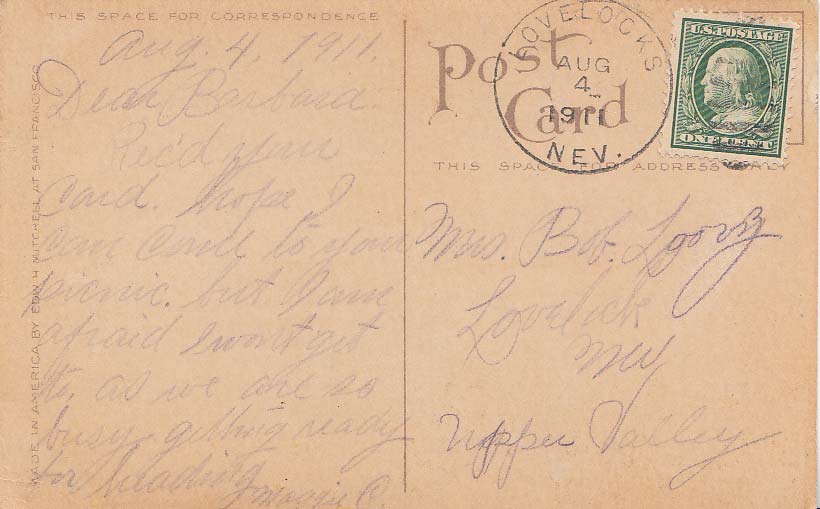 THIS SPACE FOR CORRESPONDENCE
Aug. 4, 1911.
Dear Barbara.
Rec'd your
card. hope I
can come to your
picnic. but I am
afraid I won't get
to, as we are so
busy getting ready
for heading
C.
MADE IN AMERICA BY EDW H MITCHELL AT SAN FRANCISCO
Post
Card
LOVELOCKS
AUG
4
1911
NEV.
U.S. POSTAGE
ONE CENT
THIS SPACE FOR ADDRESS ONLY
Mrs. Bob.
Lovelock
Upper Valley